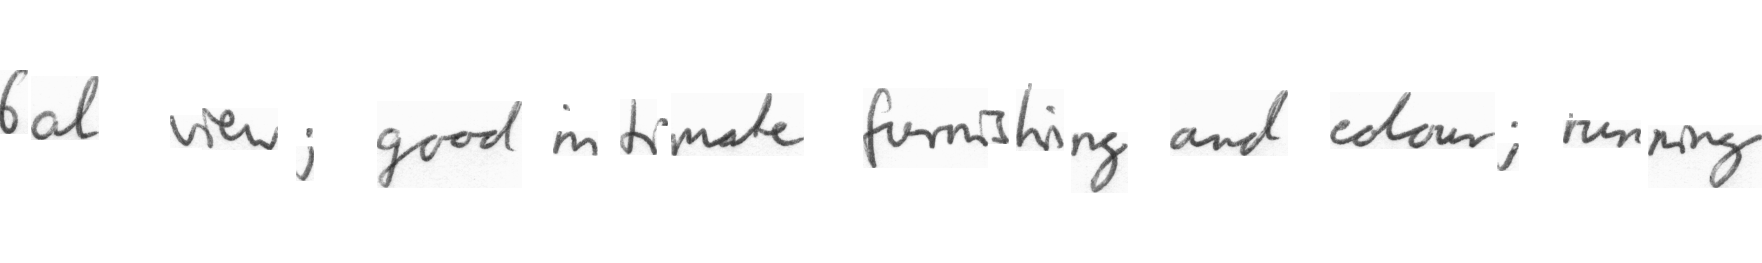 bal view; good intimate furnishing and colour; running